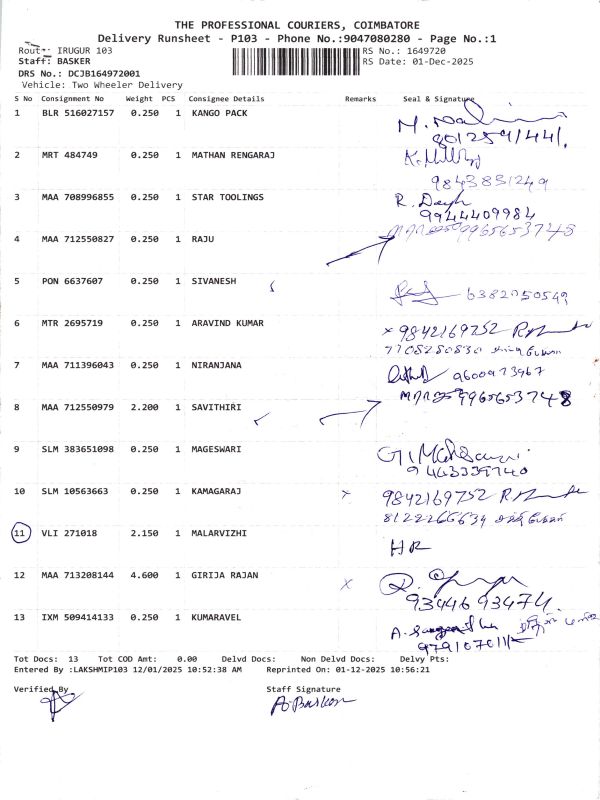 THE PROFESSIONAL COURIERS, COIMBATORE
Delivery Runsheet - P103 - Phone No.:9047080280 - Page No.:1
Route: IRUGUR 103 RS No.: 1649720
Staff: BASKER RS Date: 01-Dec-2025
DRS No.: DCJB164972001
Vehicle: Two Wheeler Delivery
S No Consignment No Weight PCS Consignee Details Remarks Seal & Signature
1 BLR 516027157 0.250 1 KANGO PACK
2 MRT 484749 0.250 1 MATHAN RENGARAJ
9843831249
3 MAA 708996855 0.250 1 STAR TOOLINGS R.
9944409984
4 MAA 712550827 0.250 1 RAJU 9965653748
5 PON 6637607 0.250 1 SIVANESH
6 MTR 2695719 0.250 1 ARAVIND KUMAR x 9842169752
7708280830
7 MAA 711396043 0.250 1 NIRANJANA 9600973967
8 MAA 712550979 2.200 1 SAVITHIRI 9965653748
9 SLM 383651098 0.250 1 MAGESWARI
10 SLM 10563663 0.250 1 KAMAGARAJ x 9842169752
11 VLI 271018 2.150 1 MALARVIZHI HR
12 MAA 713208144 4.600 1 GIRIJA RAJAN x
9344693474
13 IXM 509414133 0.250 1 KUMARAVEL A.
Tot Docs: 13 Tot COD Amt: 0.00 Delvd Docs: Non Delvd Docs: Delvy Pts:
Entered By :LAKSHMIP103 12/01/2025 10:52:38 AM Reprinted On: 01-12-2025 10:56:21
Verified By Staff Signature
A. Basker